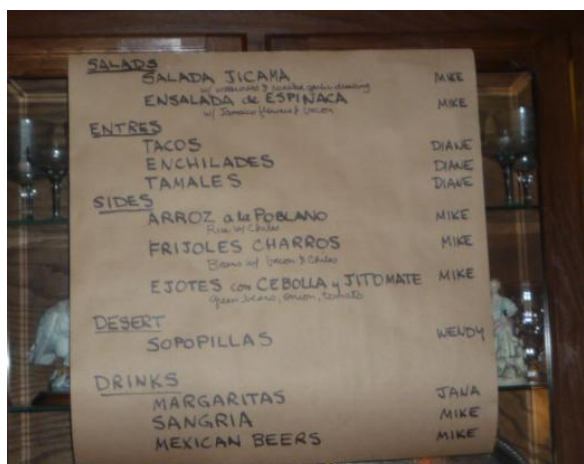 SALADS
SALADA JICAMA MIKE
w/ & roasted garlic dressing
ENSALADA de ESPINACA MIKE
w/ Jamaica flowers & bacon
ENTRES
TACOS DIANE
ENCHILADES DIANE
TAMALES DIANE
SIDES
ARROZ a la POBLANO MIKE
Rice w/ Chiles
FRIJOLES CHARROS MIKE
Beans w/ bacon & Chiles
EJOTES con CEBOLLA y JITOMATE MIKE
green beans, onion, tomato
DESERT
SOPOPILLAS WENDY
DRINKS
MARGARITAS JANA
SANGRIA MIKE
MEXICAN BEERS MIKE